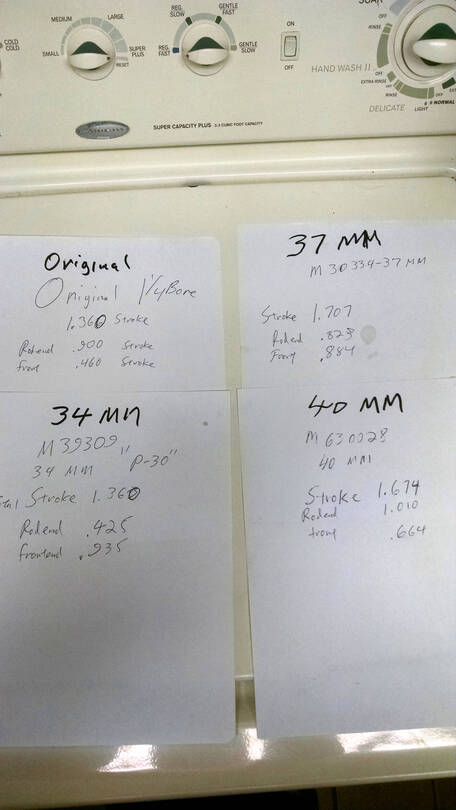 COLD
COLD
MEDIUM
LARGE
SMALL
SUPER
PLUS
RESET
REG.
SLOW
GENTLE
FAST
REG.
FAST
GENTLE
SLOW
ON
OFF
SOAK
OFF
RINSE
HAND WASH II
OFF
EXTRA RINSE
OFF
RINSE
DELICATE
LIGHT
NORMAL
OFF
SUPER CAPACITY PLUS 3.2 CUBIC FOOT CAPACITY
Original
Original 1 1/4 Bore
1.360 Stroke
Rodend .900 Stroke
front .460 Stroke
37 MM
M30334-37 MM
Stroke 1.707
Rodend .823
Front .884
34 MM
M39309
34 MM "P-30"
Stroke 1.360
Rodend .425
frontend .935
40 MM
M630028
40 MM
Stroke 1.674
Rodend 1.010
front .664